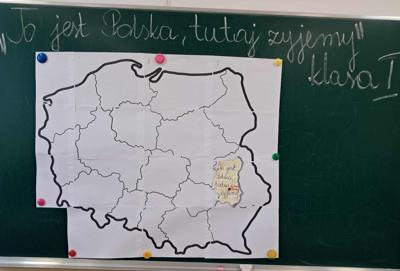 „To jest Polska, tutaj żyjemy"
klasa I